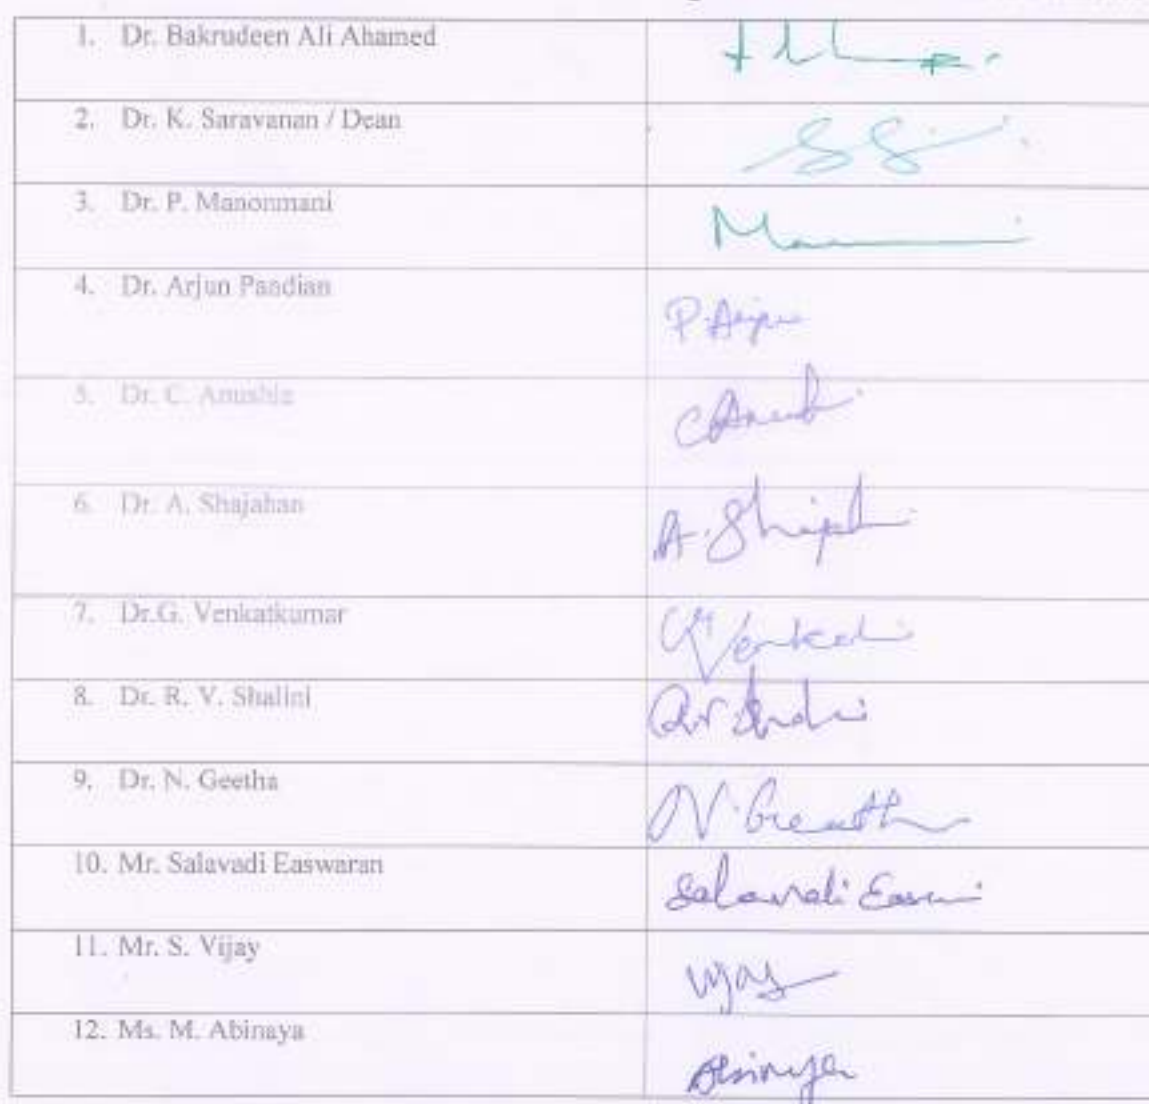 1. Dr. Bakrudeen Ali Ahamed
2. Dr. K. Saravanan / Dean
3. Dr. P. Manonmani
4. Dr. Arjun Pandian
P. Arjun
5. Dr. C. Anushia
6. Dr. A. Shajahan
7. Dr.G. Venkatkumar
8. Dr. R. V. Shalini
9. Dr. N. Geetha
10. Mr. Salavadi Easwaran
11. Mr. S. Vijay
Vijay
12. Ms. M. Abinaya
Abinaya